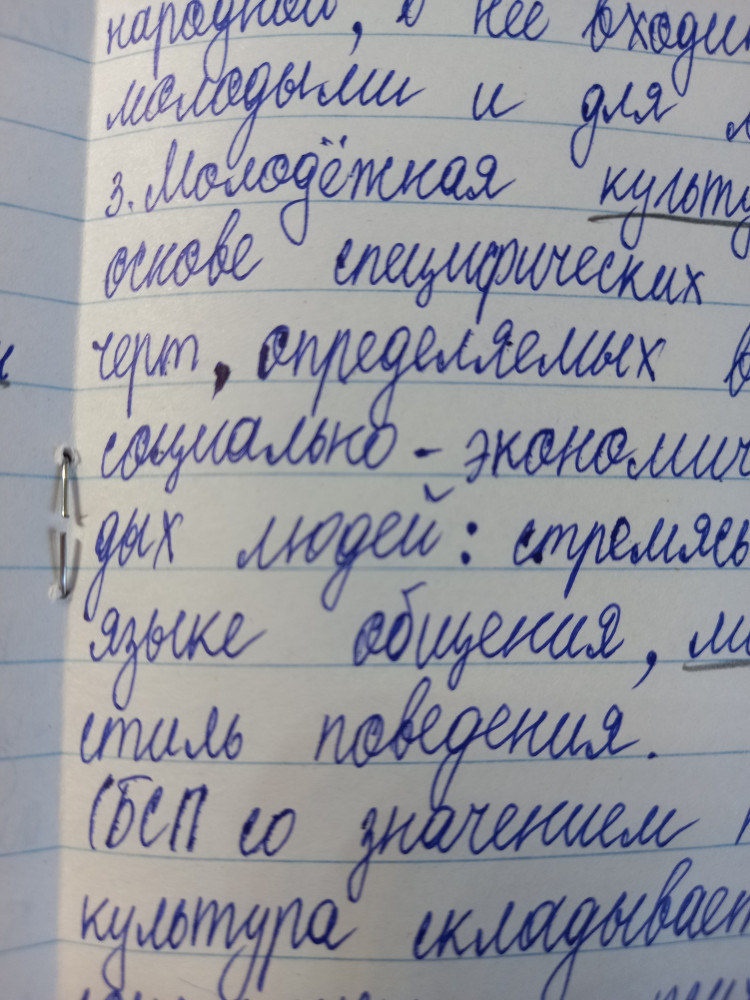 народной, в неё входи
молодыми и для
3. Молодёжная культу
основе специфических
черт, определяемых в
социально-экономич
дых людей: стремясь
языке общения, м
стиль поведения.
(БСП со значением
культура складывает